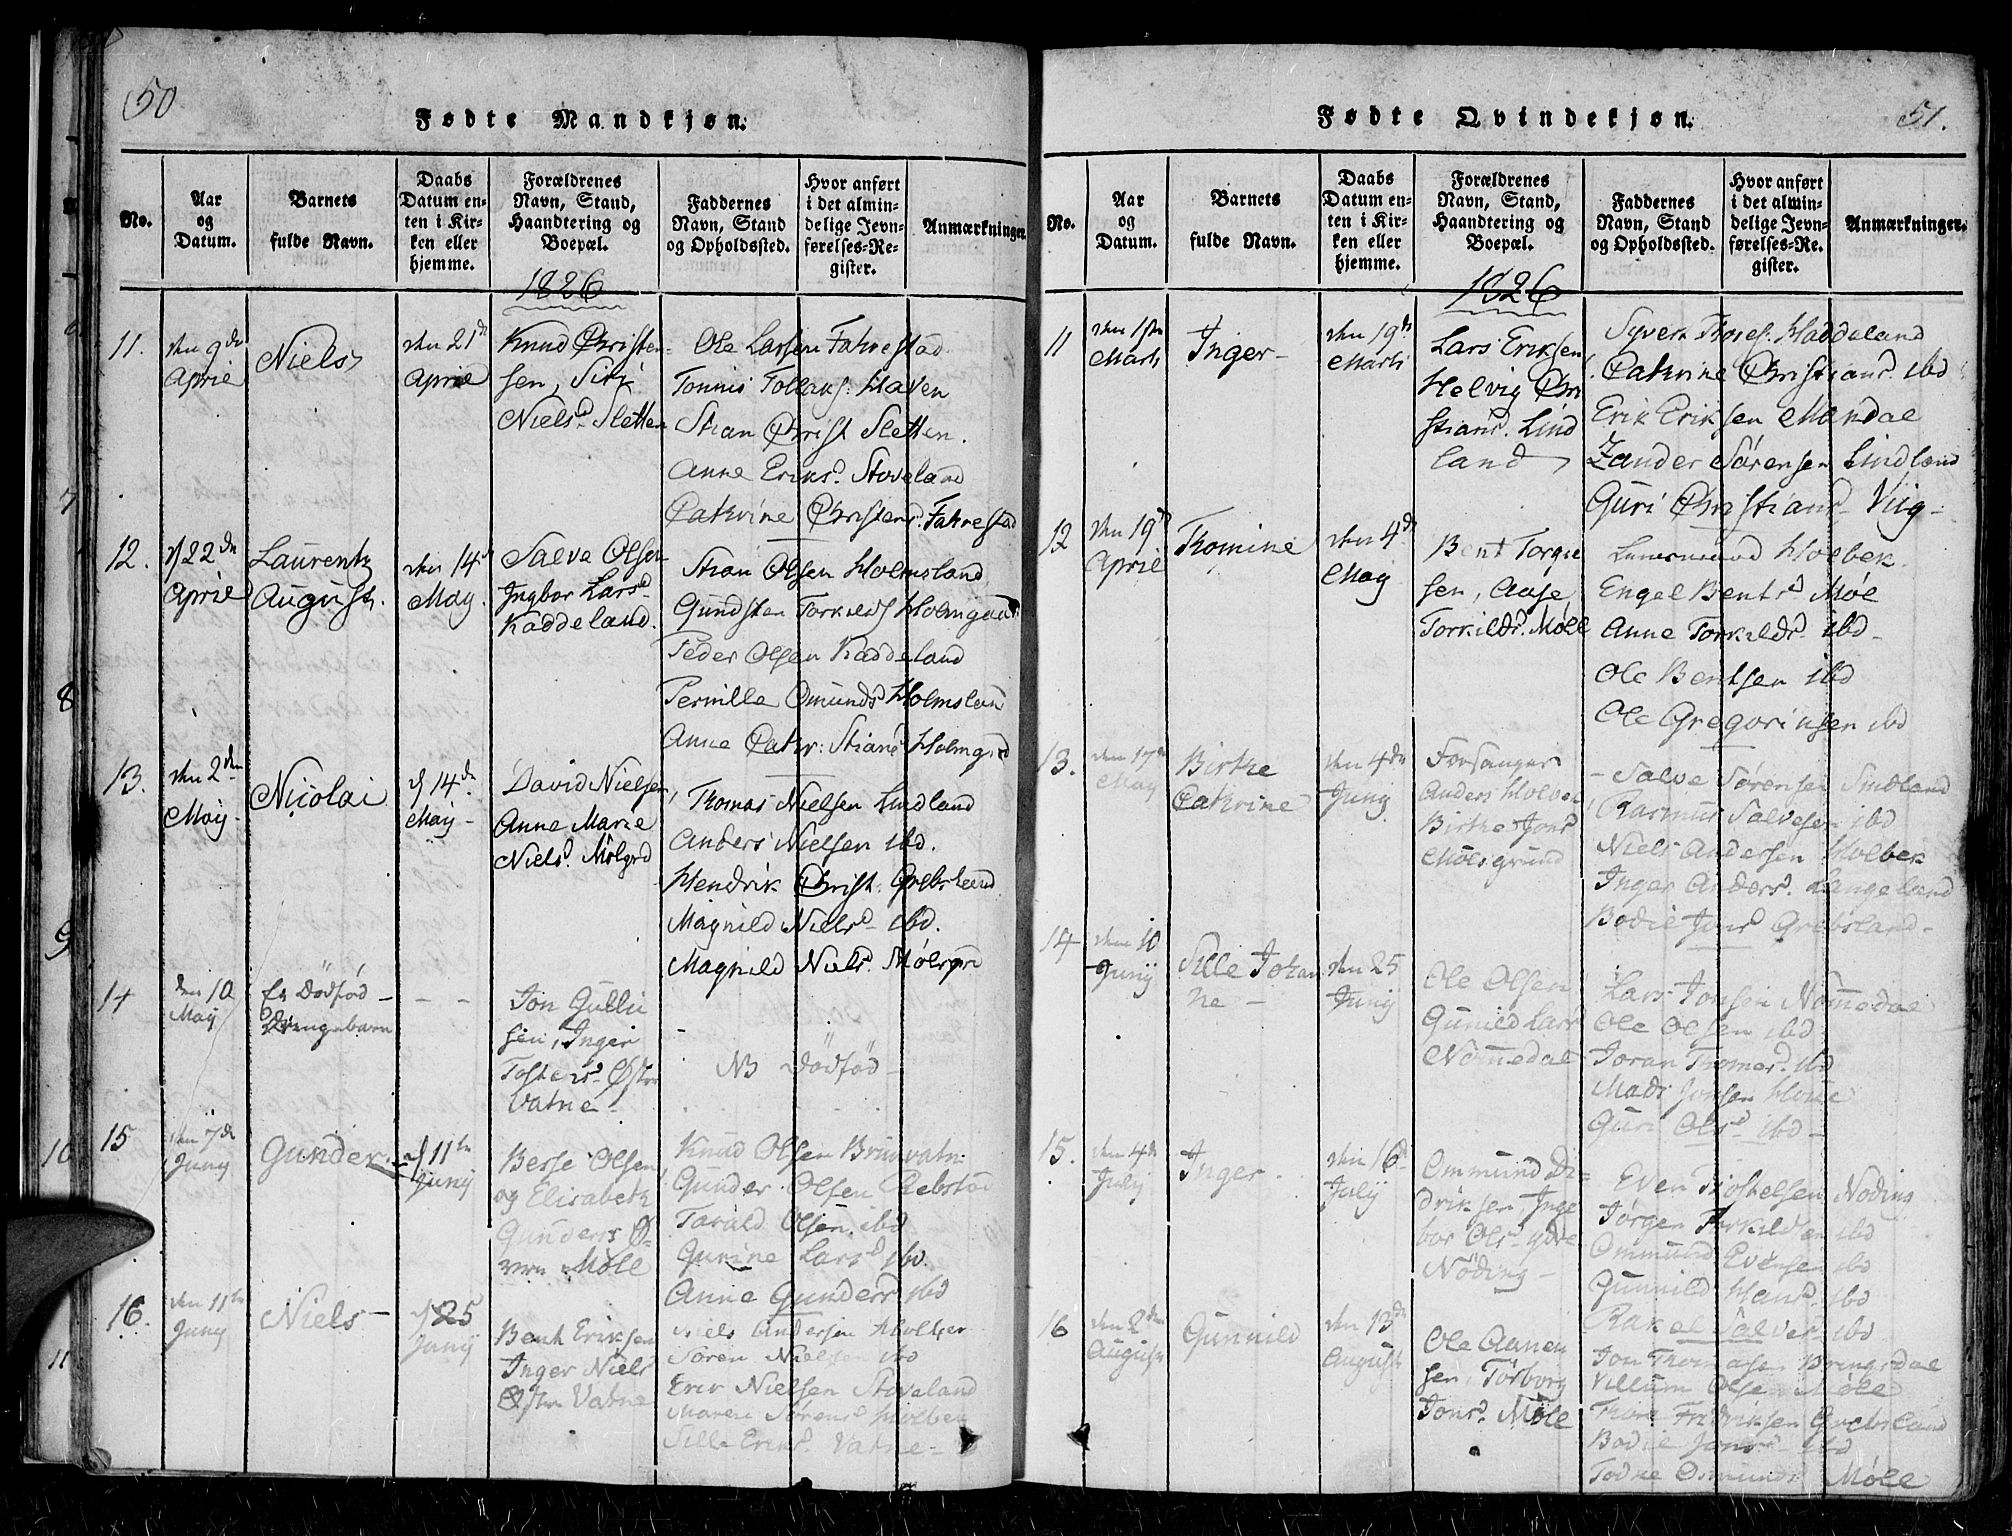 50
Fødte Mandkjøn.
No.
Aar
og
Datum.
Barnets
fulde Navn.
Daabs
Datum en-
ten i Kir-
ken eller
hjemme.
Forældrenes
Navn, Stand,
Haandtering og
Boepæl.
Faddernes
Navn, Stand
og Opholdssted.
Hvor anført
i det almin-
delige Jevn-
førelses-Re-
gister.
Anmærkninger
1826
11.
den 9de
April
Niels
den 21de
April
Knud Christen-
sen, Siri
Nielsd Sletten
Ole Larsen Fahrestad
Tønnis Tollaks: Haven
Stian Christ Sletten.
Anne Eriksd Stoveland
Cathrine Christens. Fahrestad
12.
d 22de
April
Laurentz
August.
den 14de
May.
Salve Olsen
Ingbor Larsd
Kaddeland.
Stian Olsen Holmsland
Gundsten Torkilds Holmgaard
Peder Olsen Kaddeland
Pernille Omunds Holmsland
Anne Cathr: Stians Holmgrd
13.
den 2den
May
Nicolai
d 14de
May
David Nielsen,
Anne Marie
Nielsd. Mølgrd
Thomas Nielsen Lindland
Anders Nielsen ibd.
Hendrik Christ: Grebsland
Magnild Nielsd ibd.
Magnild Niels. Mølegrd
14
den 10
May
En Dödföd
Drengebarn
- -
Jon Gulli
sen, Inger
Tostensd Østre
Vatne
NB Dödföd
15
den 7de
Juny
Gunder
d 11te
Junij
Berse Olsen
og Elisabeth
Gunders Ø-
vre Møll
Knud Olsen Brunvatn
Gunder Olsen Rebstad
Tarald Olsen ibd
Gurine Larsd ibd.
Anne Gunders ibd
16.
den 11te
Juny
Niels
d 25
Junij
Bent Eriksen
Inger Niels
Østre Vatne
Niels Andersen Holbek
Søren Nielsen ibd
Erik Nielsen Stoveland
Maren Sørensd Holbek
Sille Eriksd. Vatne
51.
Fødte Qvindekjøn.
No.
Aar
og
Datum.
Barnets
fulde Navn.
Daabs
Datum en-
ten i Kir-
ken eller
hjemme.
Forældrenes
Navn, Stand,
Haandtering og
Boepæl.
Faddernes
Navn, Stand
og Opholdssted.
Hvor anført
i det almin-
delige Jevn-
førelses-Re-
gister.
Anmærkninger.
1826
11
den 1ste
Marts
Inger
den 19de
Marts
Lars Eriksen
Helvig Chri
stiansd. Lind
land
Syvert Haddeland
Cathrine Christians. ibd
Erik Eriksen Mandal
Zander Sørensen Lindland
Guri Christians Viig
12
den 19de
April
Thomine
den 4de
May
Bent Torge
sen, Aase
Torkilds. Møll
Lensmand Holbek.
Engel Bentsd Møl
Anne Torkilds. ibd
Ole Bentsen ibd
Ole Gregoriusen ibd
13.
den 17de
May
Birthe
Cathrine
den 4de
Junij
Forsanger
Anders Holbek
Birthe Jonsd
Mølsgrund
Salve Sørensen Smedland
Rasmus Salvesen ibd
Niels Andersen Holbek
Inger Anders. Langeland
Bodil Jonsd Grebsland
14
den 10
Junij
Sille Johan
ne
den 25
Junij
Ole Olsen
Gunild Lars
Nomedal
Lars Jonsen Nomedal
Ole Olsen ibd
Joran Thomasd. ibd
Mads Jonsen
Guri Olsd ibd
15.
den 4de
July
Inger
den 16de
Julij
Ommund Di-
driksen, Inge
bor Ols. ydre
Nöding
Even Tostelsen Noding
Jørgen Torkildsen ibd
Ommund Evensen ibd
Gunnild Hans. ibd
Rakel Salves ibd
16
den 2den
August
Gunnild
den 13de
August
Ole Aanen
sen, Torborg
Jonsd. Møll
Jon Thomasen Bringsdal
Villum Olsen Møll
Thore Fridriksen Grebsland
Bodil Jonsd ibd
Todne Osmunds Møll